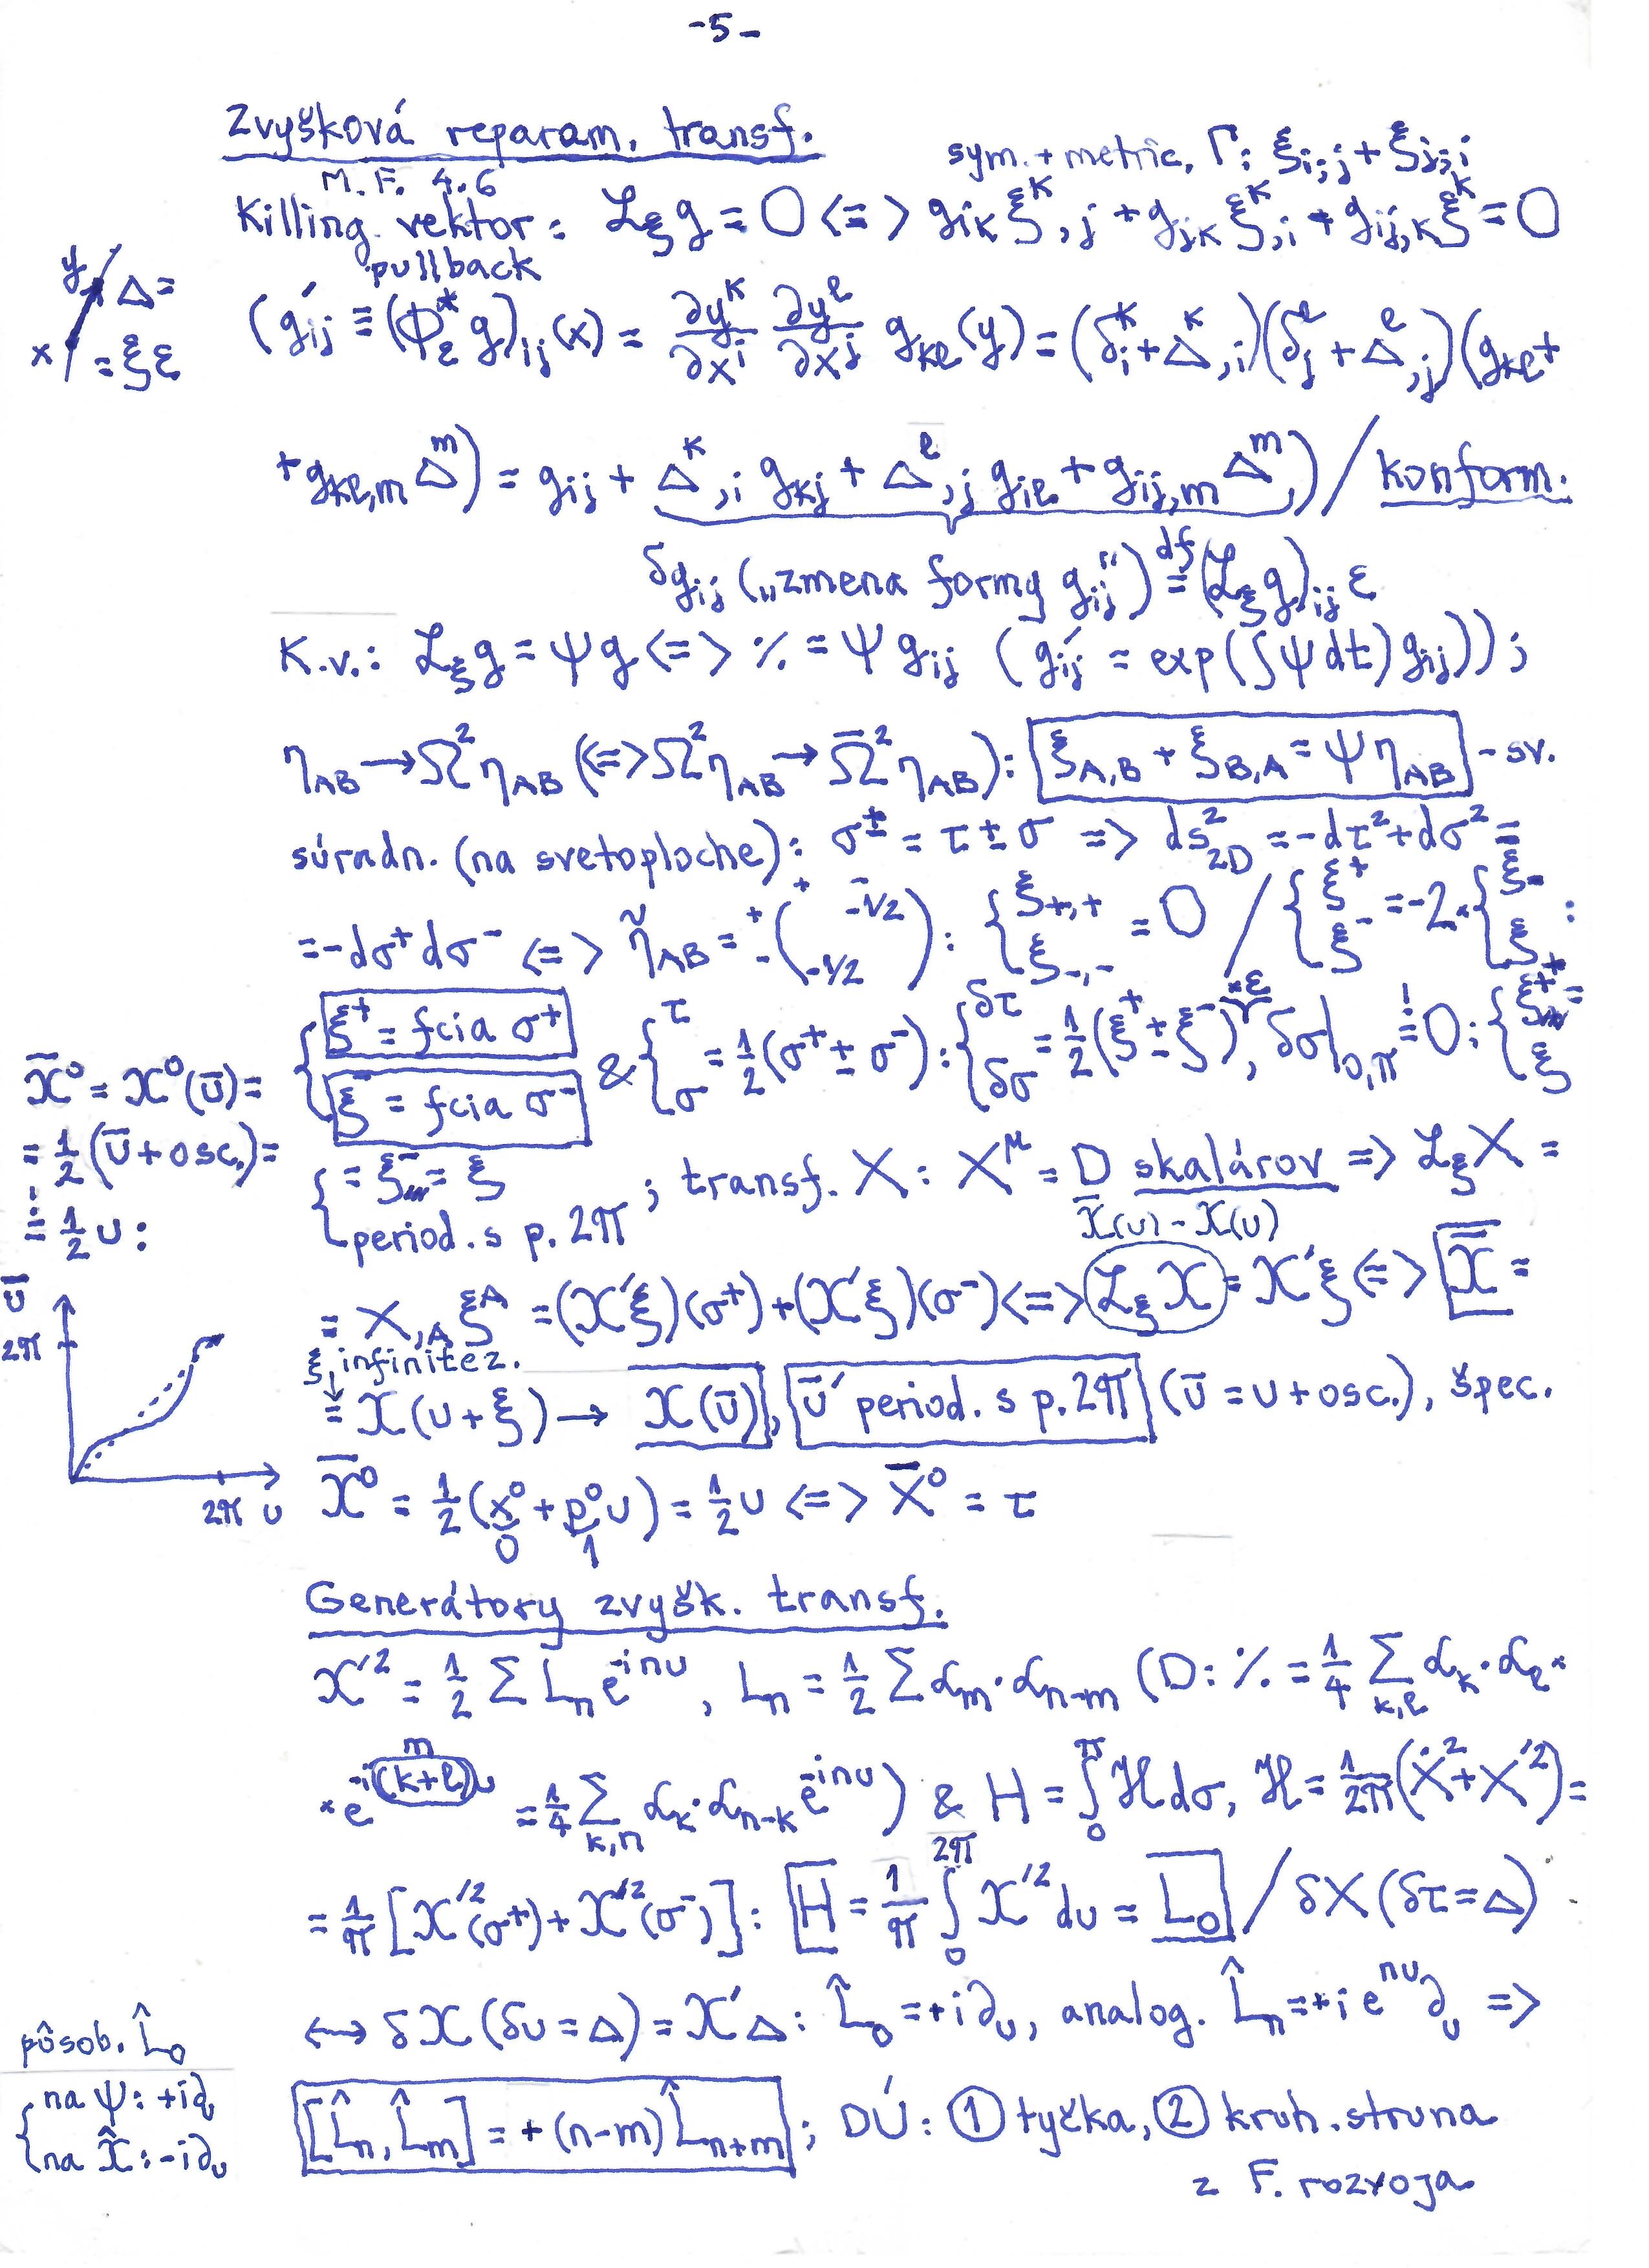 -5-
Zvyšková reparam. transf.
sym. + metric. Γ: ξi;j + ξj;i
M.F. 4.6
Killing. vektor: ℒξ g = 0 <=> gik ξ^k,j + gjk ξ^k,i + gij,k ξ^k = 0
pullback
y Δ =
x = ξε
(g'ij ≡ (Φε* g)ij (x) = ∂y^k/∂x^i ∂y^l/∂x^j gkl(y) = (δi^k + Δ^k,i)(δj^l + Δ^l,j)(gkl +
+ gkl,m Δ^m) = gij + Δ^k,i gkj + Δ^l,j gil + gij,m Δ^m) / konform.
δgij („zmena formy gij“) =df (ℒξ g)ij ε
K.v.: ℒξ g = ψg <=> ٪ = ψ gij (g'ij = exp(∫ψdt) gij));
ηAB → Ω² ηAB (<=> Ω² ηAB → Ω̄² ηAB): ξA,B + ξB,A = ψ ηAB - sv.
súradn. (na svetoploche): σ± = τ ± σ => ds²2D = -dτ² + dσ² =
= -dσ⁺dσ⁻ <=> η̃AB = + - ( + - -1/2 -1/2 ): { ξ+,+ ξ-,- = 0 / { ξ⁺ ξ⁻ = -2 × { ξ- ξ+ :
{ ξ⁺ = fcia σ⁺ ξ⁻ = fcia σ⁻ & { τ σ = 1/2(σ⁺ ± σ⁻): { δτ δσ = 1/2(ξ⁺ ± ξ⁻) ×ε, δσ|0,π =! 0; { ξ⁺ = ξ
X̄⁰ = X⁰(ū) =
= 1/2 (ū + osc.) =
=! 1/2 u:
{ = ξ⁻ = ξ period. s p. 2π ; transf. X: X^μ = D skalárov => ℒξ X =
X̄(u) - X(u)
= X,A ξ^A = (X'ξ)(σ⁺) + (X'ξ)(σ⁻) <=> ℒξ X = X'ξ <=> X̄ =
ξ infinitez.
= X(u + ξ) → X(ū), ū' period. s p. 2π (ū = u + osc.), špec.
ū
2π
2π u
X̄⁰ = 1/2 (x⁰ + p⁰u) = 1/2 u <=> X̄⁰ = τ
0 1
Generátory zvyšk. transf.
X'² = 1/2 Σ Ln e^-inu, Ln = 1/2 Σ αm · αn-m (D: ٪ = 1/4 Σk,l αk · αl ×
× e^-i(k+l)u = 1/4 Σk,n αk · αn-k e^-inu) & H = ∫0^π ℋ dσ, ℋ = 1/2π (Ẋ² + X'²) =
= 1/π [X'²(σ⁺) + X'²(σ⁻)]: H = 1/π ∫0^2π X'² du = L0 / δX (δτ = Δ)
↔ δX (δu = Δ) = X'Δ: L̂0 = +i∂u, analog. L̂n = +i e^nu ∂u =>
pôsob. L̂0
{ na ψ: +i∂
na X̂: -i∂u
[L̂n, L̂m] = +(n-m) L̂n+m ; DÚ: ① tyčka, ② kruh. struna
z F. rozvoja